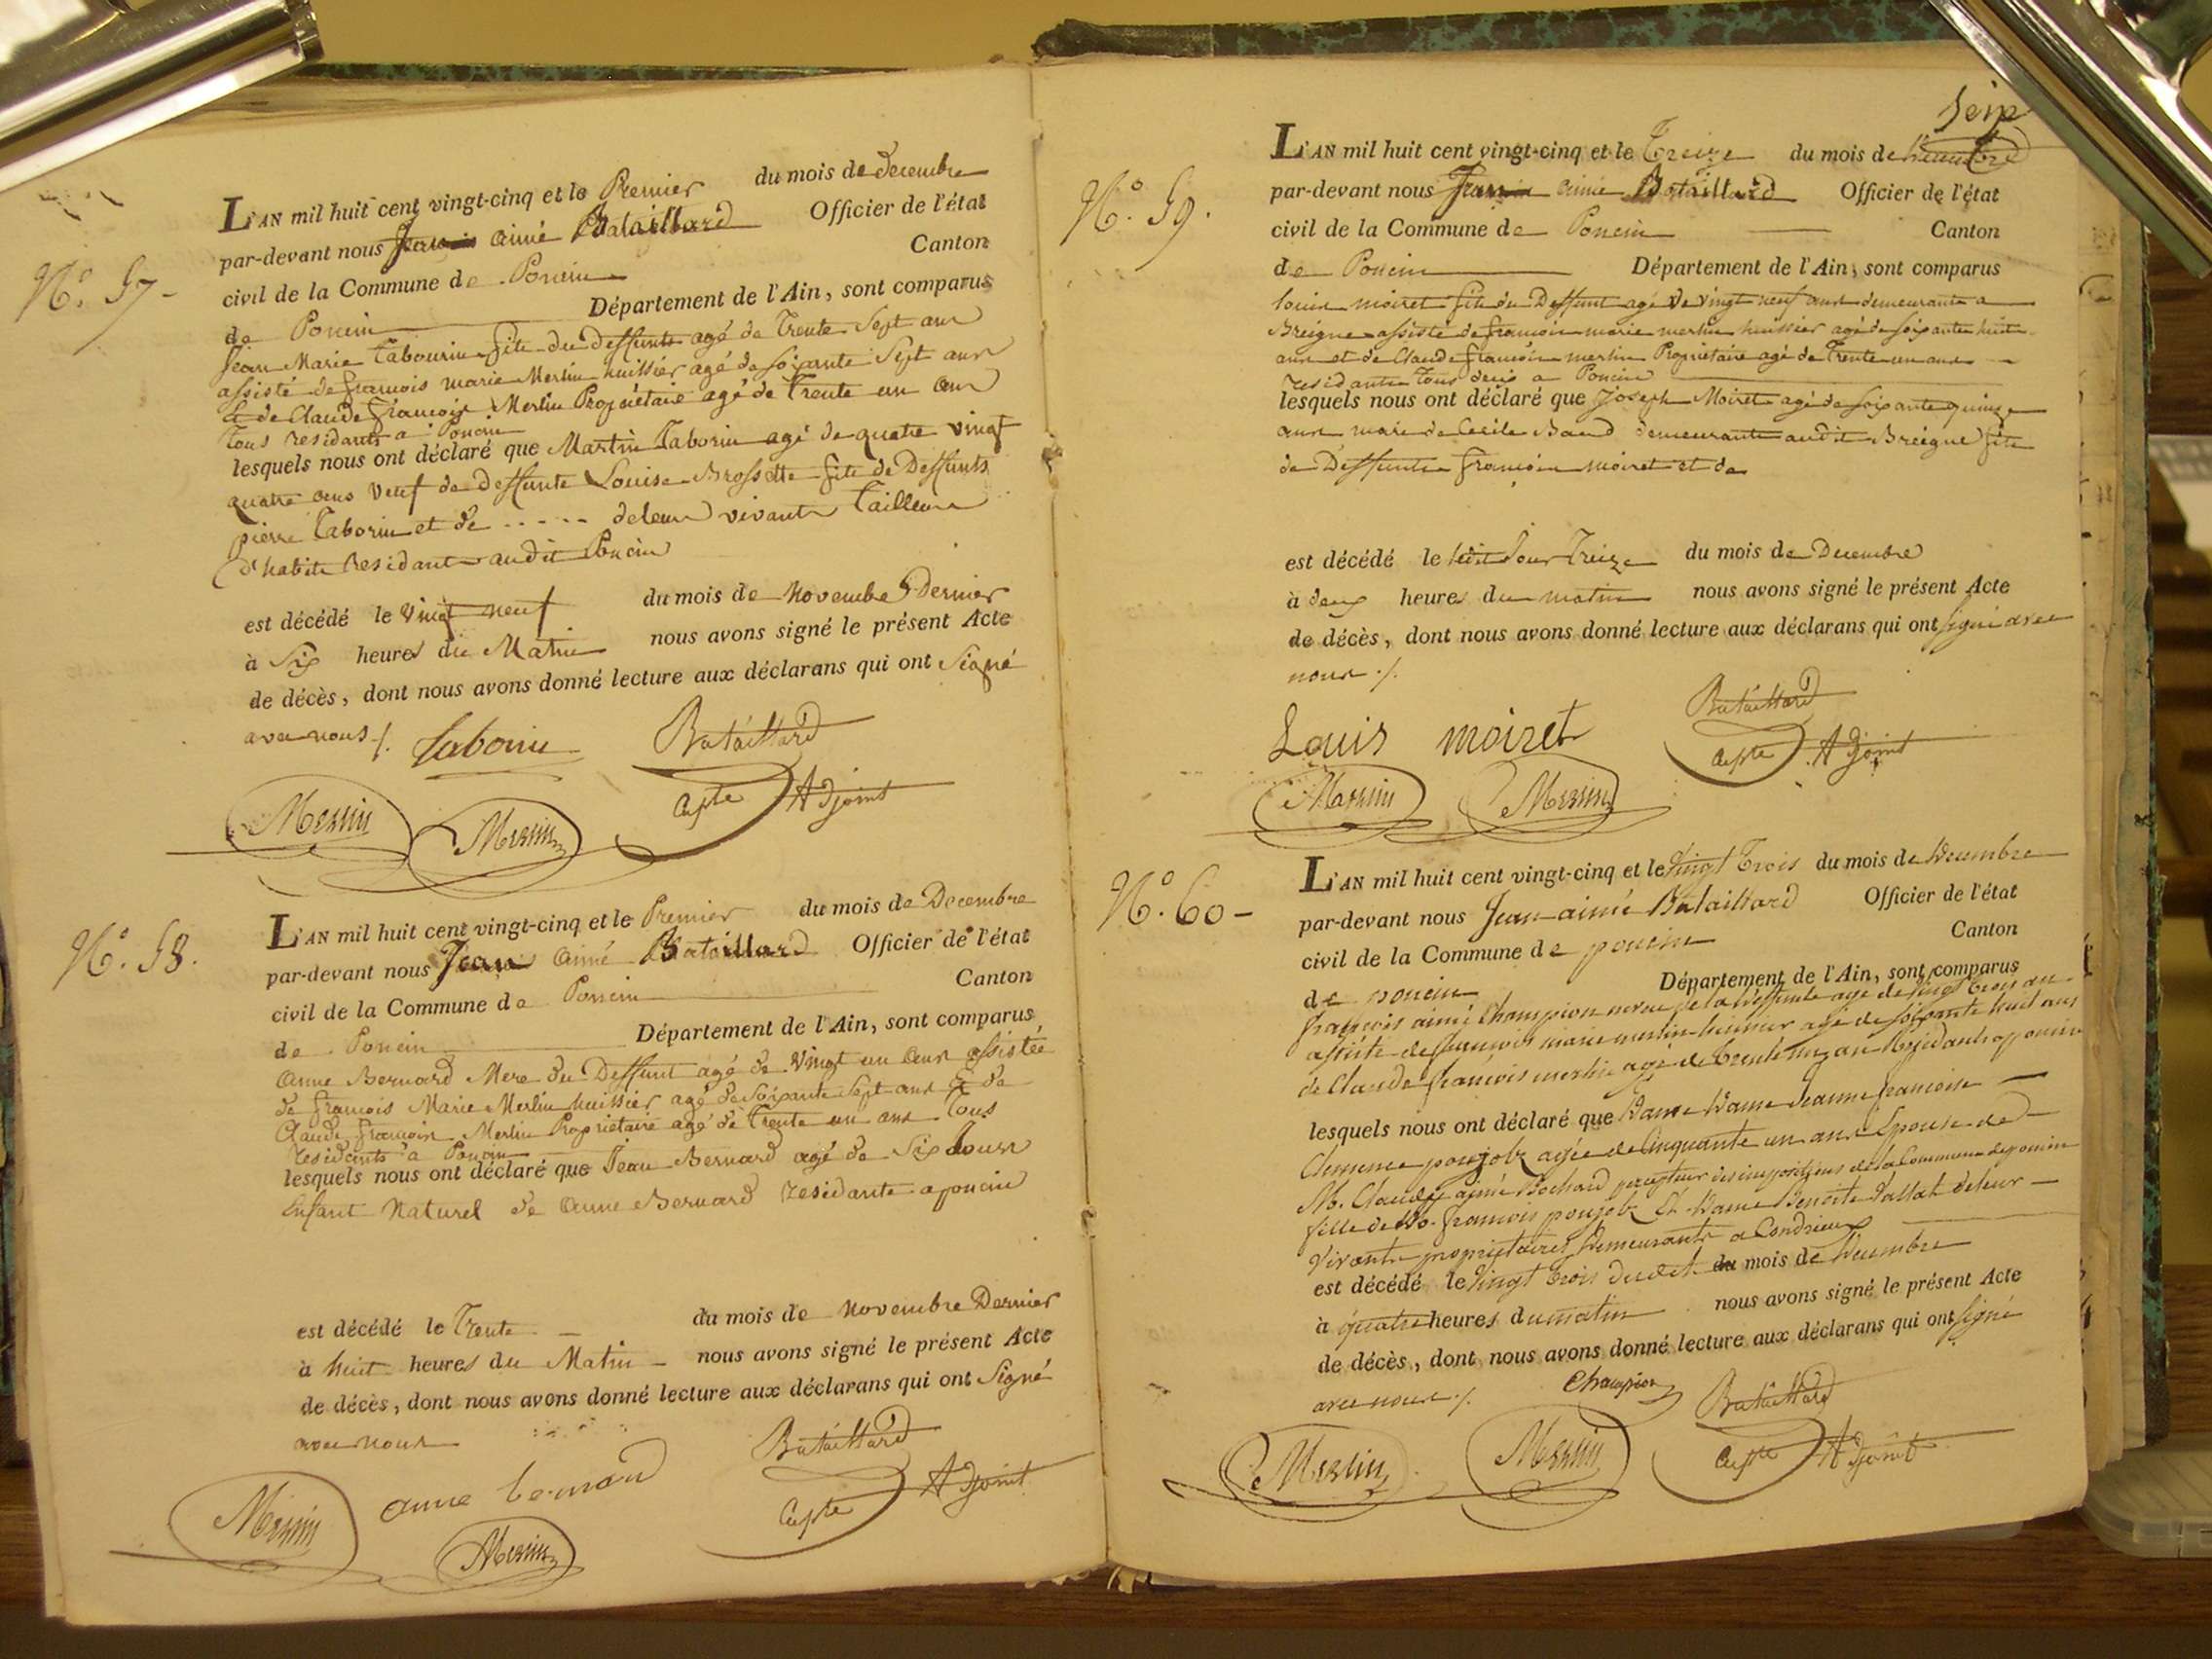 N.° 57-
L'AN mil huit cent vingt-cinq et le Premier du mois de Decembre
par-devant nous Jean aimé Bataillard Officier de l'état
civil de la Commune de Poncin Canton
de Poncin Département de l'Ain, sont comparus
Jean Marie Tabourin fils du Deffunt agé de Trente Sept ans
assisté de françois marie Merlin huissier agé de soixante Sept ans
Et de Claude françois Merlin Propriétaire agé de Trente un ans
Tous residants a Poncin
lesquels nous ont déclaré que Martin Taborin agé de quatre vingt
quatre ans Veuf de Deffunte Louise Brossette fils de Deffunts
pierre Taborin et de ..... de leur vivants Tailleur
d'habits Residant audit Poncin
est décédé le vingt neuf du mois de Novembre Dernier
à Six heures du Matin nous avons signé le présent Acte
de décès, dont nous avons donné lecture aux déclarans qui ont Signé
avec nous /. Taborin Bataillard
Merlin Merlin Adjoint
N.° 58.
L'AN mil huit cent vingt-cinq et le Premier du mois de Decembre
par-devant nous Jean Aimé Bataillard Officier de l'état
civil de la Commune de Poncin Canton
de Poncin Département de l'Ain, sont comparus
Anne Bernard Mere du Deffunt agé de Vingt un ans assistée
de françois Marie Merlin huissier agé de Soixante Sept ans Et de
Claude françois Merlin Propriétaire agé de Trente un ans Tous
residants a Poncin
lesquels nous ont déclaré que Jean Bernard agé de Six Jours
Enfant Naturel de Anne Bernard residante a poncin
est décédé le Trente - du mois de Novembre Dernier
à huit heures du Matin - nous avons signé le présent Acte
de décès, dont nous avons donné lecture aux déclarans qui ont Signé
avec nous
Bataillard
Merlin anne bernard Adjoint
Merlin
N.° 59.
L'AN mil huit cent vingt-cinq et le Treize du mois de Decembre
par-devant nous Jean aimé Bataillard Officier de l'état
civil de la Commune de Poncin Canton
de Poncin Département de l'Ain, sont comparus
louis moiret fils du Deffunt agé de vingt neuf ans demeurant a
Breigne assisté de françois marie merlin huissier agé de soixante huit
ans et de Claude françois merlin Propriétaire agé de Trente un ans
residants Tous deux a Poncin
lesquels nous ont déclaré que Joseph Moiret agé de soixante quinze
ans mari de Cecile Baud demeurant audit Breigne fils
de Deffunts françois moiret et de
est décédé le dit Jour Treize du mois de Decembre
à deux heures du matin nous avons signé le présent Acte
de décès, dont nous avons donné lecture aux déclarans qui ont signé avec
nous /.
Louis moiret Bataillard
Merlin Merlin Adjoint
N.° 60-
L'AN mil huit cent vingt-cinq et le Vingt Trois du mois de Decembre
par-devant nous Jean aimé Bataillard Officier de l'état
civil de la Commune de poncin Canton
de poncin Département de l'Ain, sont comparus
françois aimé Champion neveu de la Deffunte agé de Vingt trois ans
assisté de françois marie merlin huissier agé de soixante huit ans
de Claude françois merlin agé de trente un ans Residants a poncin
lesquels nous ont déclaré que Dame Jeanne françoise
Clemence agée de Cinquante un ans Epouse de
M. Claude aimé Bochard percepteur des impositions de la Commune de poncin
fille de françois Et Dame Benoite de leur
Vivants propriétaires Demeurants a Condrieux
est décédé le Vingt trois dudit du mois de Decembre
à quatre heures du matin nous avons signé le présent Acte
de décès, dont nous avons donné lecture aux déclarans qui ont signé
avec nous /. Champion Bataillard
Merlin Merlin Adjoint